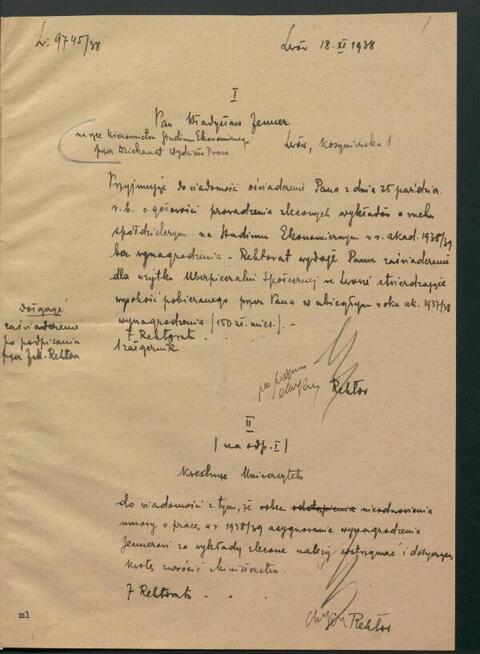 L: 9745/38
Lwów 18.XI 1938
1
I
Pan Władysław Jenner
na ręce Kierownictwa Studium Ekonomicznego
przez Dziekanat Wydziału Praw.
Lwów, Kosynierska 1
Przyjmując do wiadomości oświadczenie Pana z dnia 25 paździer.
r.b. o gotowości prowadzenia zleconych wykładów o ruchu
spółdzielczym na Studium Ekonomicznym w r. akad. 1938/39
bez wynagrodzenia - Rektorat wydaje Panu zaświadczenie
dla użytku Ubezpieczalni Społecznej we Lwowie stwierdzające
wysokość pobieranego przez Pana w ubiegłym roku ak. 1937/38
wynagrodzenia /150 zł. mies./. -
Z Rektoratu
1 załącznik
dołączyć
zaświadczenie
po podpisaniu
przez JM. Rektora
Rektor
II
/ na odp. I /
Kwestura Uniwersytetu
do wiadomości z tym, że wobec odstąpienia nieodnowienia
umowy o pracę w r. 1938/39 asygnowanie wynagrodzenia
Jennerowi za wykłady zlecone należy wstrzymać i dotyczącą
kwotę zwrócić Ministerstwu.
Z Rektoratu
Rektor
ml